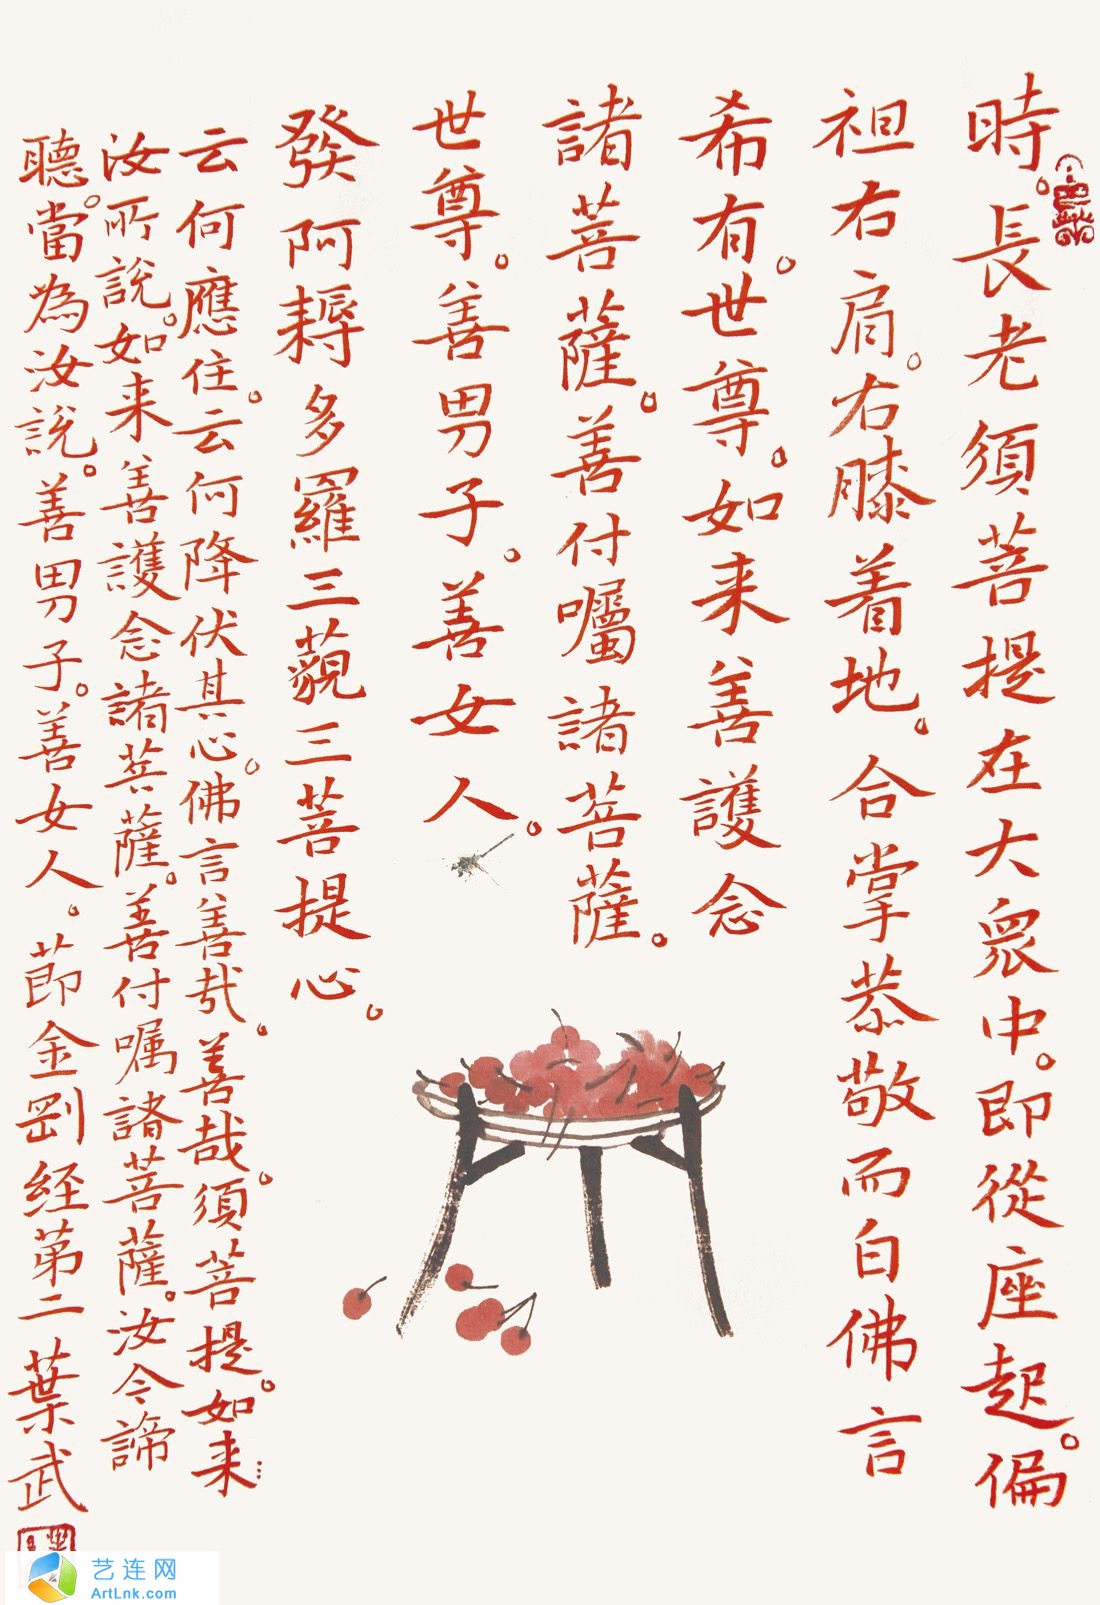 時。長老須菩提在大眾中。即從座起。偏
袒右肩。右膝着地。合掌恭敬而白佛言
希有。世尊。如来善護念
諸菩薩。善付囑諸菩薩。
世尊。善男子。善女人。
發阿耨多羅三藐三菩提心。
云何應住。云何降伏其心。佛言善哉。善哉。須菩提。如来…
汝所說。如来善護念諸菩薩。善付嘱諸菩薩。汝今諦
聽。當為汝說。善男子。善女人。茆金剛經第二葉武
艺连网
ArtLnk.com